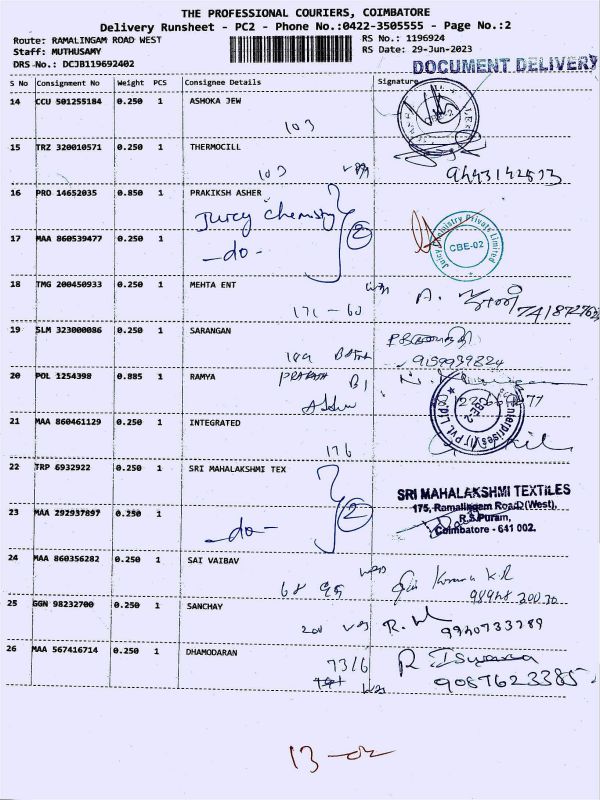 THE PROFESSIONAL COURIERS, COIMBATORE
Delivery Runsheet - PC2 - Phone No.:0422-3505555 - Page No.:2
Route: RAMALINGAM ROAD WEST RS No.: 1196924
Staff: MUTHUSAMY RS Date: 29-Jun-2023
DRS No.: DCJB119692402 DOCUMENT DELIVERY
S No Consignment No Weight PCS Consignee Details Signature
14 CCU 501255184 0.250 1 ASHOKA JEW
103
15 TRZ 320010571 0.250 1 THERMOCILL
103 9443142573
16 PRO 14652035 0.850 1 PRAKIKSH ASHER
Juicy chemistry 2
Juicy Chemistry Private Limited CBE-02
17 MAA 860539477 0.250 1
-do-
18 TMG 200450933 0.250 1 MEHTA ENT
171-60
19 SLM 323000086 0.250 1 SARANGAN
9159939824
20 POL 1254398 0.885 1 RAMYA
B1
21 MAA 860461129 0.250 1 INTEGRATED
176
22 TRP 6932922 0.250 1 SRI MAHALAKSHMI TEX
SRI MAHALAKSHMI TEXTILES
175, Ramalingam Road (West),
R.S.Puram,
Coimbatore - 641 002.
23 MAA 292937897 0.250 1
-do- 2
24 MAA 860356282 0.250 1 SAI VAIBAV
68 Kumar K.R
98948 20030
25 GGN 98232700 0.250 1 SANCHAY
200 R.
9940733789
26 MAA 567416714 0.250 1 DHAMODARAN
73/6 R Iswara
9087623385
13